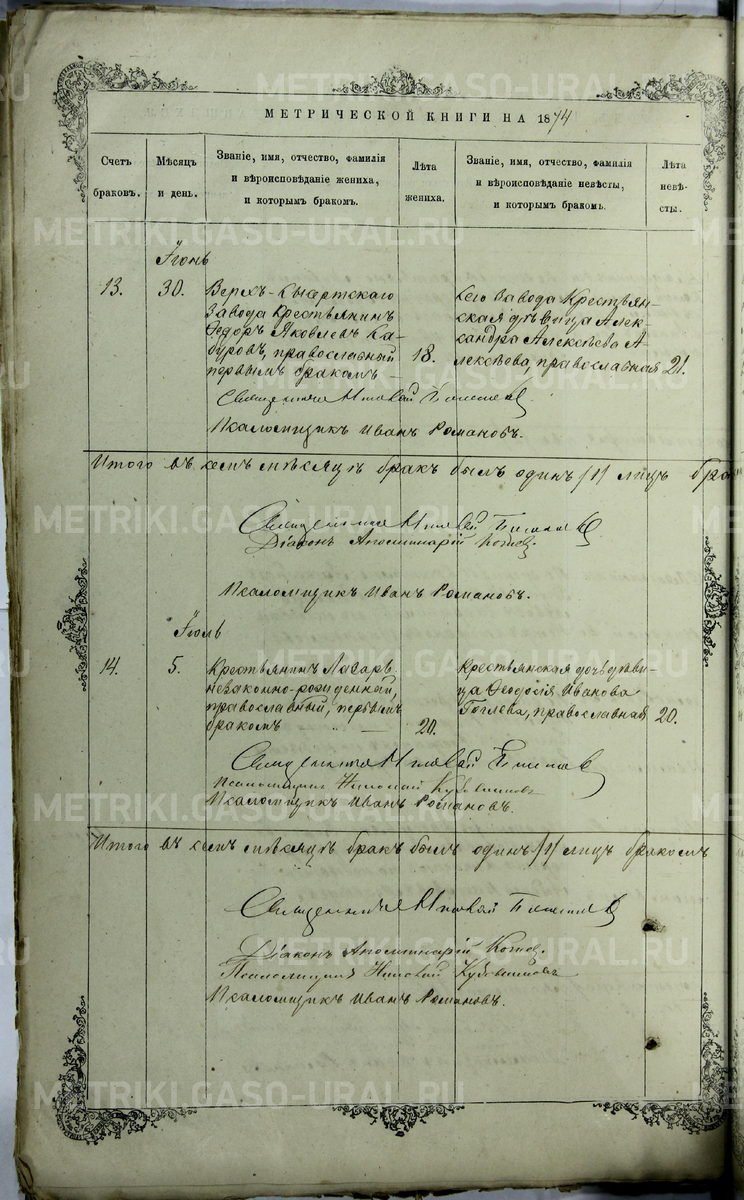 МЕТРИЧЕСКОЙ КНИГИ НА 1874
Счетъ браковъ.
Мѣсяцъ и день.
Званіе, имя, отчество, фамилія
и вѣроисповѣданіе жениха,
и которымъ бракомъ.
Лѣта жениха.
Званіе, имя, отчество, фамилія
и вѣроисповѣданіе невѣсты,
и которымъ бракомъ.
Лѣта невѣ-
сты.
Іюнь
13. 30.
Верхъ-Сысертскаго
Завода Крестьянинъ
Ѳедоръ Яковлевъ Ка-
буровъ, православный
первымъ бракомъ —
18.
сего Завода Крестьян-
ская дѣвица Алек-
сандра Алексѣева А-
лексѣева, православная
21.
Священникъ
Псаломщикъ Иванъ Романовъ.
Итого въ семъ мѣсяцѣ бракъ былъ одинъ /1/ лицъ бра
Священникъ
Діаконъ Аполлинарій
Псаломщикъ Иванъ Романовъ.
Іюль
14. 5.
Крестьянинъ Лазарь
незаконно-рожденный,
православный, первымъ
бракомъ —
20.
Крестьянская дочь дѣви-
ца Ѳеодосія Иванова
православная
20.
Священникъ
Псаломщикъ Николай
Псаломщикъ Иванъ Романовъ.
Итого въ семъ мѣсяцѣ бракъ былъ одинъ /1/ лицъ бракомъ
Священникъ
Діаконъ Аполлинарій
Псаломщикъ Николай
Псаломщикъ Иванъ Романовъ.
METRIKI.GASO-URAL.RU